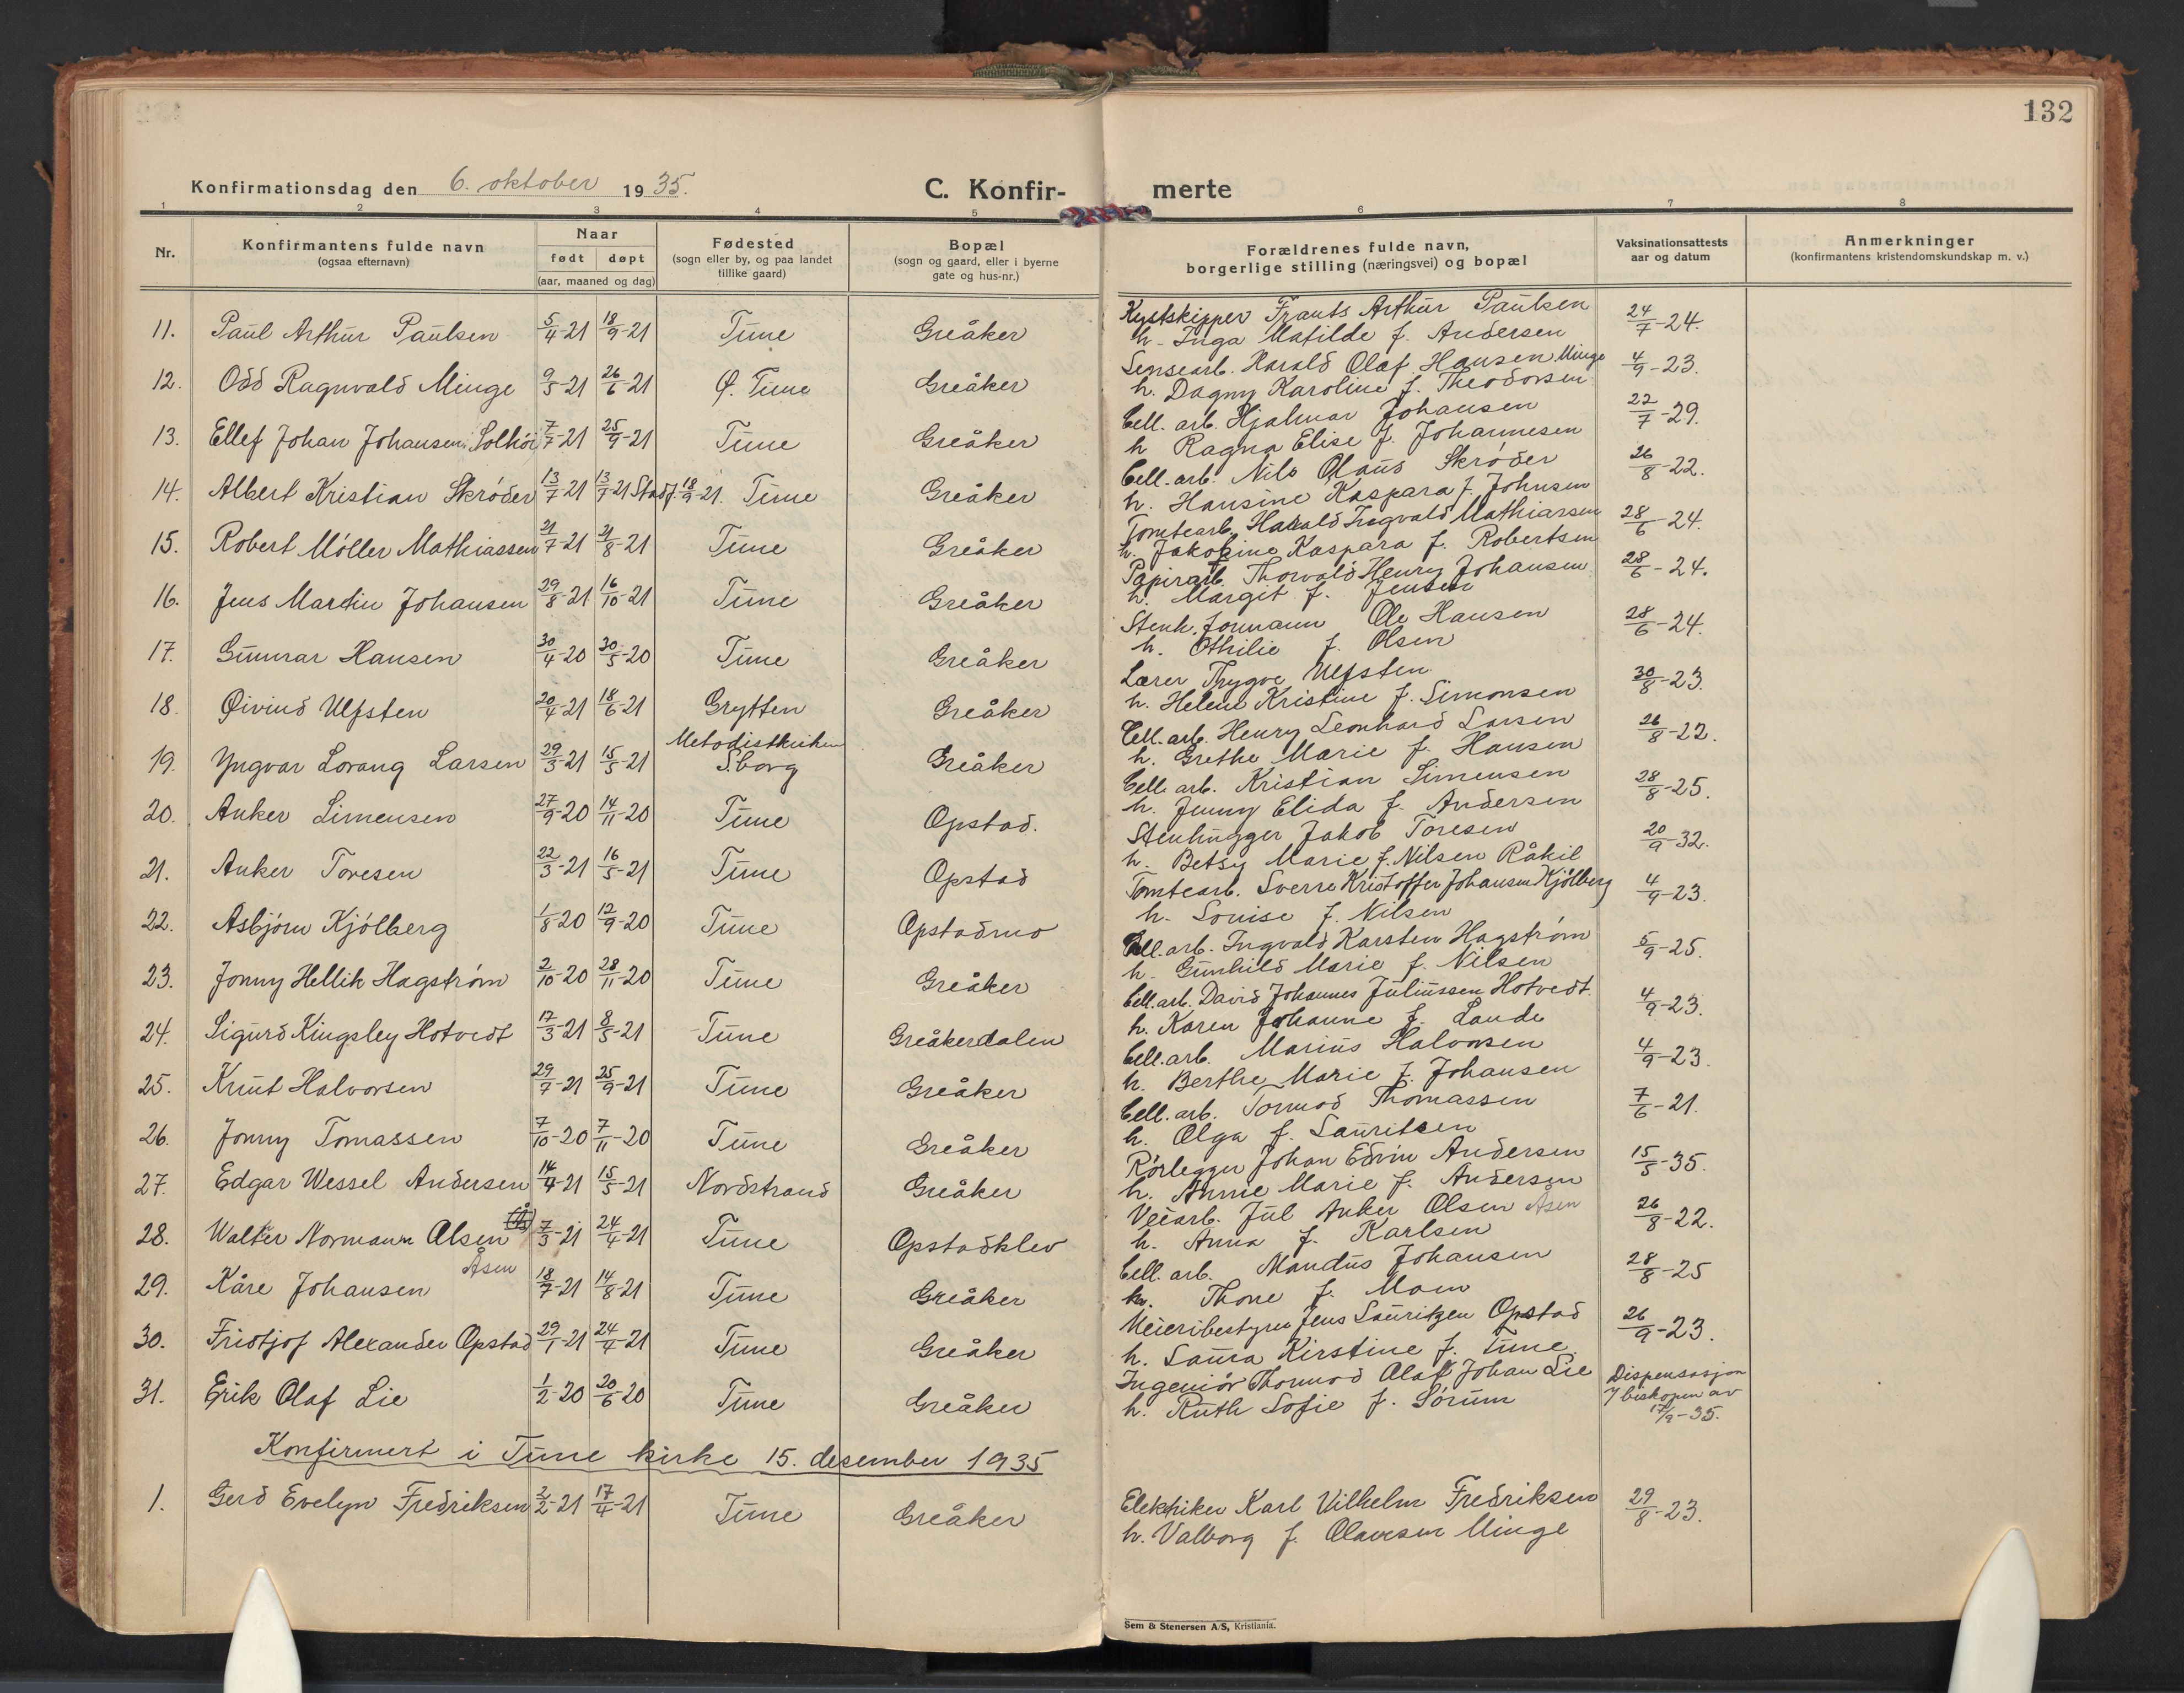 132
Konfirmationsdag den 6. oktober 1935.
C. Konfir- merte
1 2 3 4 5 6 7 8
Nr.
Konfirmantens fulde navn
(ogsaa efternavn)
Naar
født døpt
(aar, maaned og dag)
Fødested
(sogn eller by, og paa landet
tillike gaard)
Bopæl
(sogn og gaard, eller i byerne
gate og hus-nr.)
Forældrenes fulde navn,
borgerlige stilling (næringsvei) og bopæl
Vaksinationsattests
aar og datum
Anmerkninger
(konfirmantens kristendomskundskap m. v.)
11. Paul Arthur Paulsen 5/4-21 18/9-21 Tune Greåker Kystskipper Frants Arthur Paulsen 24/7-24.
h. Inga Matilde f. Andersen
12. Odd Ragnvald Minge 9/5-21 26/6-21 Ø. Tune Greåker Lensearb. Harald Olaf Hansen Minge 4/9-23.
h. Dagny Karoline f. Theodorsen
13. Ellef Johan Johansen Solhöi 7/7-21 25/9-21 Tune Greåker Cell. arb. Hjalmar Johansen 22/7-29.
h Ragna Elise f. Johannesen
14. Albert Kristian Skröder 13/7-21 13/7-21 Stadf. 18/9-21. Tune Greåker Cell. arb. Nils Olaus Skröder 26/8-22.
h. Hansine Kaspara f. Johnsen
15. Robert Möller Mathiassen 21/7-21 21/8-21 Tune Greåker Tomtearb. Harald Tragvald Mathiassen 28/6-24.
h. Jakobine Kaspara f. Robertsen
16. Jens Martin Johansen 29/8-21 16/10-21 Tune Greåker Papirarb. Thorvald Henry Johansen 28/6-24.
h. Margit f. Jensen
17. Gunnar Hansen 30/4-20 30/5-20 Tune Greåker Stenh. formann Ole Hansen 28/6-24.
h. Othilie f. Olsen
18. Øivind Ulfsten 20/4-21 18/6-21 Grytten Greåker Lærer Thygve Ulfsten 30/8-23.
h. Helene Kristine f. Simonsen
19. Yngvar Lorang Larsen 29/3-21 15/5-21 Metodistkirken
S.borg Greåker Cell. arb. Henry Leonhard Larsen 26/8-22.
h. Grethe Marie f. Hansen
20. Anker Simensen 27/9-20 14/11-20 Tune Opstad. Cell. arb. Kristian Simensen 28/8-25.
h. Jenny Elida f. Andersen
21. Anker Toresen 22/3-21 16/5-21 Tune Opstad Stenhugger Jakob Toresen 20/9-32.
h. Betsy Marie f. Nilsen Råkil
22. Asbjörn Kjölberg 1/8-20 12/9-20 Tune Opstadmo Tomtearb. Sverre Kristoffer Johansen Kjölberg 4/9-23.
h. Louise f. Nilsen
23. Jonny Hellik Hagström 2/10-20 28/11-20 Tune Greåker Cell. arb. Ingvald Karsten Hagström 5/9-25.
h. Gunhild Marie f. Nilsen
24. Sigurd Kingsley Hotvedt 17/3-21 8/5-21 Tune Greåkerdalen Cell. arb. David Johannes Juliussen Hotvedt. 4/9-23.
h. Karen Johanne f. Lande
25. Knut Halvorsen 29/7-21 25/9-21 Tune Greåker Cell. arb. Marius Halvorsen 4/9-23.
h. Berthe Marie f. Johansen
26. Jonny Tomassen 7/10-20 7/11-20 Tune Greåker Cell. arb. Tormod Thomassen 7/6-21.
h. Olga f. Lauritsen
27. Edgar Wessel Andersen 14/4-21 15/5-21 Nordstrand Greåker Rörlegger Johan Edvin Andersen 15/5-35.
h. Annie Marie f. Andersen
28. Walter Normann Olsen Åsen 7/3-21 24/4-21 Tune Opstadklev Veiarb. Jul Anker Olsen Åsen 26/8-22.
h. Anna f. Karlsen
29. Kåre Johansen 18/7-21 14/8-21 Tune Greåker Cell. arb. Mandus Johansen 28/8-25
h. Thone f. Moen
30. Fridtjof Alexander Opstad 29/1-21 24/4-21 Tune Greåker Meieribestyrer Jens Lauritzen Opstad 26/9-23.
h. Laura Kirstine f. Tune
31. Erik Olaf Lie 1/2-20 20/6-20 Tune Greåker Ingeniör Thormod Olaf Johan Lie Dispensasjon
h. Ruth Sofie f. Sörum f biskopen av
17/9-35.
Konfirmert i Tune kirke 15. desember 1935
1. Gerd Evelyn Fredriksen 2/2-21 17/4-21 Tune Greåker Elektriker Karl Vilhelm Fredriksen 29/8-23.
h. Valborg f. Olavesen Minge
Sem & Stenersen A/S, Kristiania.